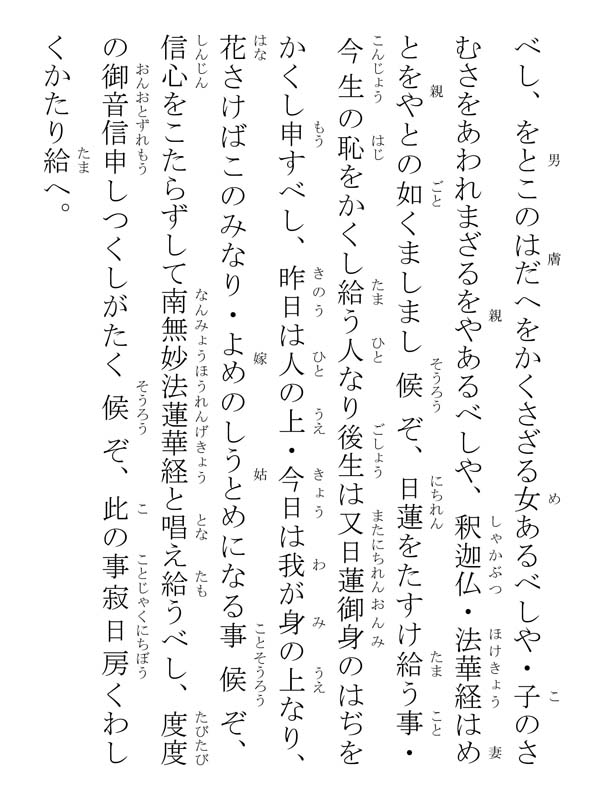 べし、をとこのはだへをかくさざる女あるべしや・子のさ
むさをあわれまざるをやあるべしや、釈迦仏・法華経はめ
とをやとの如くましまし候ぞ、日蓮をたすけ給う事・
今生の恥をかくし給う人なり後生は又日蓮御身のはぢを
かくし申すべし、昨日は人の上・今日は我が身の上なり、
花さけばこのみなり・よめのしうとめになる事候ぞ、
信心をこたらずして南無妙法蓮華経と唱え給うべし、度度
の御音信申しつくしがたく候ぞ、此の事寂日房くわし
くかたり給へ。